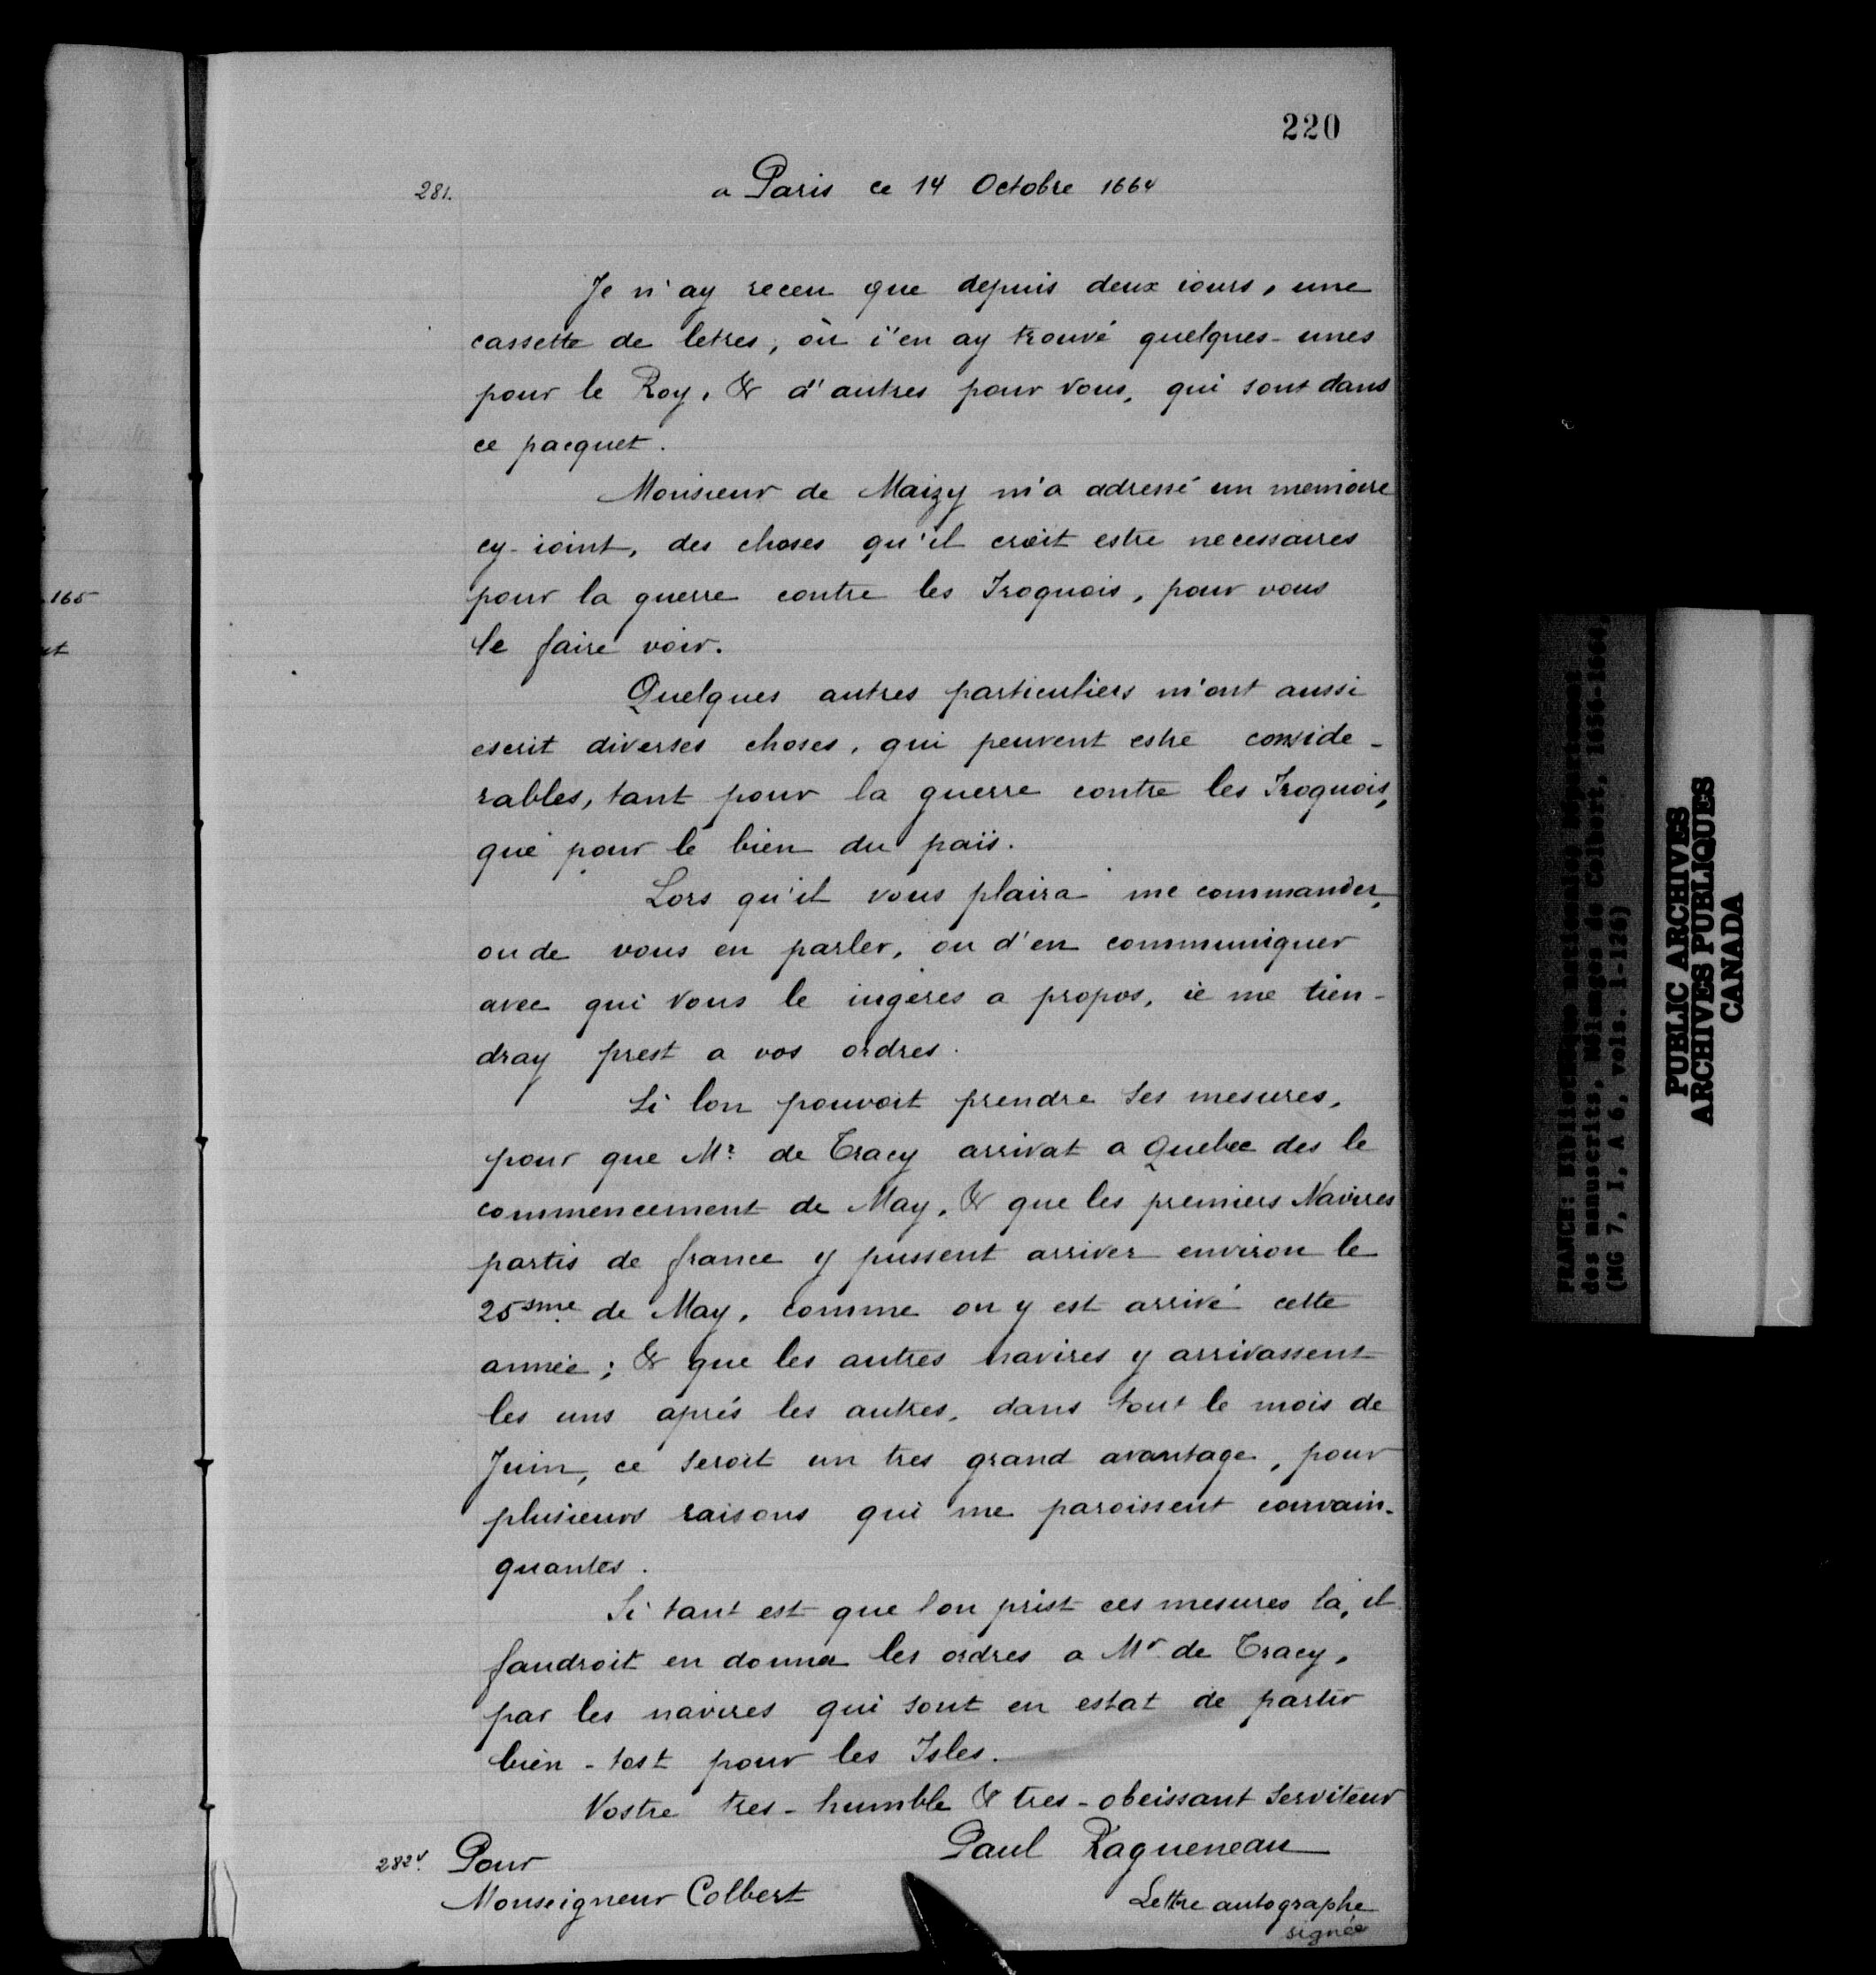 220
281.
a Paris ce 14 Octobre 1664
Je n'ay receu que depuis deux iours, une
cassette de letres, où i'en ay trouvé quelques-unes
pour le Roy, & d'autres pour vous, qui sont dans
ce pacquet.
Monsieur de Maizy m'a adressé un memoire
cy-ioint, des choses qu'il croit estre necessaires
pour la guerre contre les Iroquois, pour vous
le faire voir.
Quelques autres particuliers m'ont aussi
escrit diverses choses, qui peuvent estre conside-
rables, tant pour la guerre contre les Iroquois,
que pour le bien du païs.
Lors qu'il vous plaira me commander,
ou de vous en parler, ou d'en communiquer
avec qui vous le iugeres a propos, ie me tien-
dray prest a vos ordres.
Si lon pouvoit prendre ses mesures,
pour que Mr de Tracy arrivat a Quebec des le
commencement de May, & que les premiers Navires
partis de france y pussent arriver environ le
25sme de May, comme on y est arrivé cette
année; & que les autres navires y arrivassent
les uns aprés les autres, dans tout le mois de
Juin, ce seroit un tres grand avantage, pour
plusieurs raisons qui me paroissent convain-
quantes.
Si tant est que lon prist ces mesures la, il
faudroit en donner les ordres a Mr de Tracy,
par les navires qui sont en estat de partir
bien-tost pour les Isles.
Vostre tres-humble & tres-obeissant serviteur
Paul Ragueneau
282v. Pour
Monseigneur Colbert
Lettre autographe
signée
165
et
FRANCE: Bibliothèque nationale, Département
des manuscrits, Mélanges de Colbert, 1656-1664,
(MG 7, I, A 6, vols. 1-126)
PUBLIC ARCHIVES
ARCHIVES PUBLIQUES
CANADA